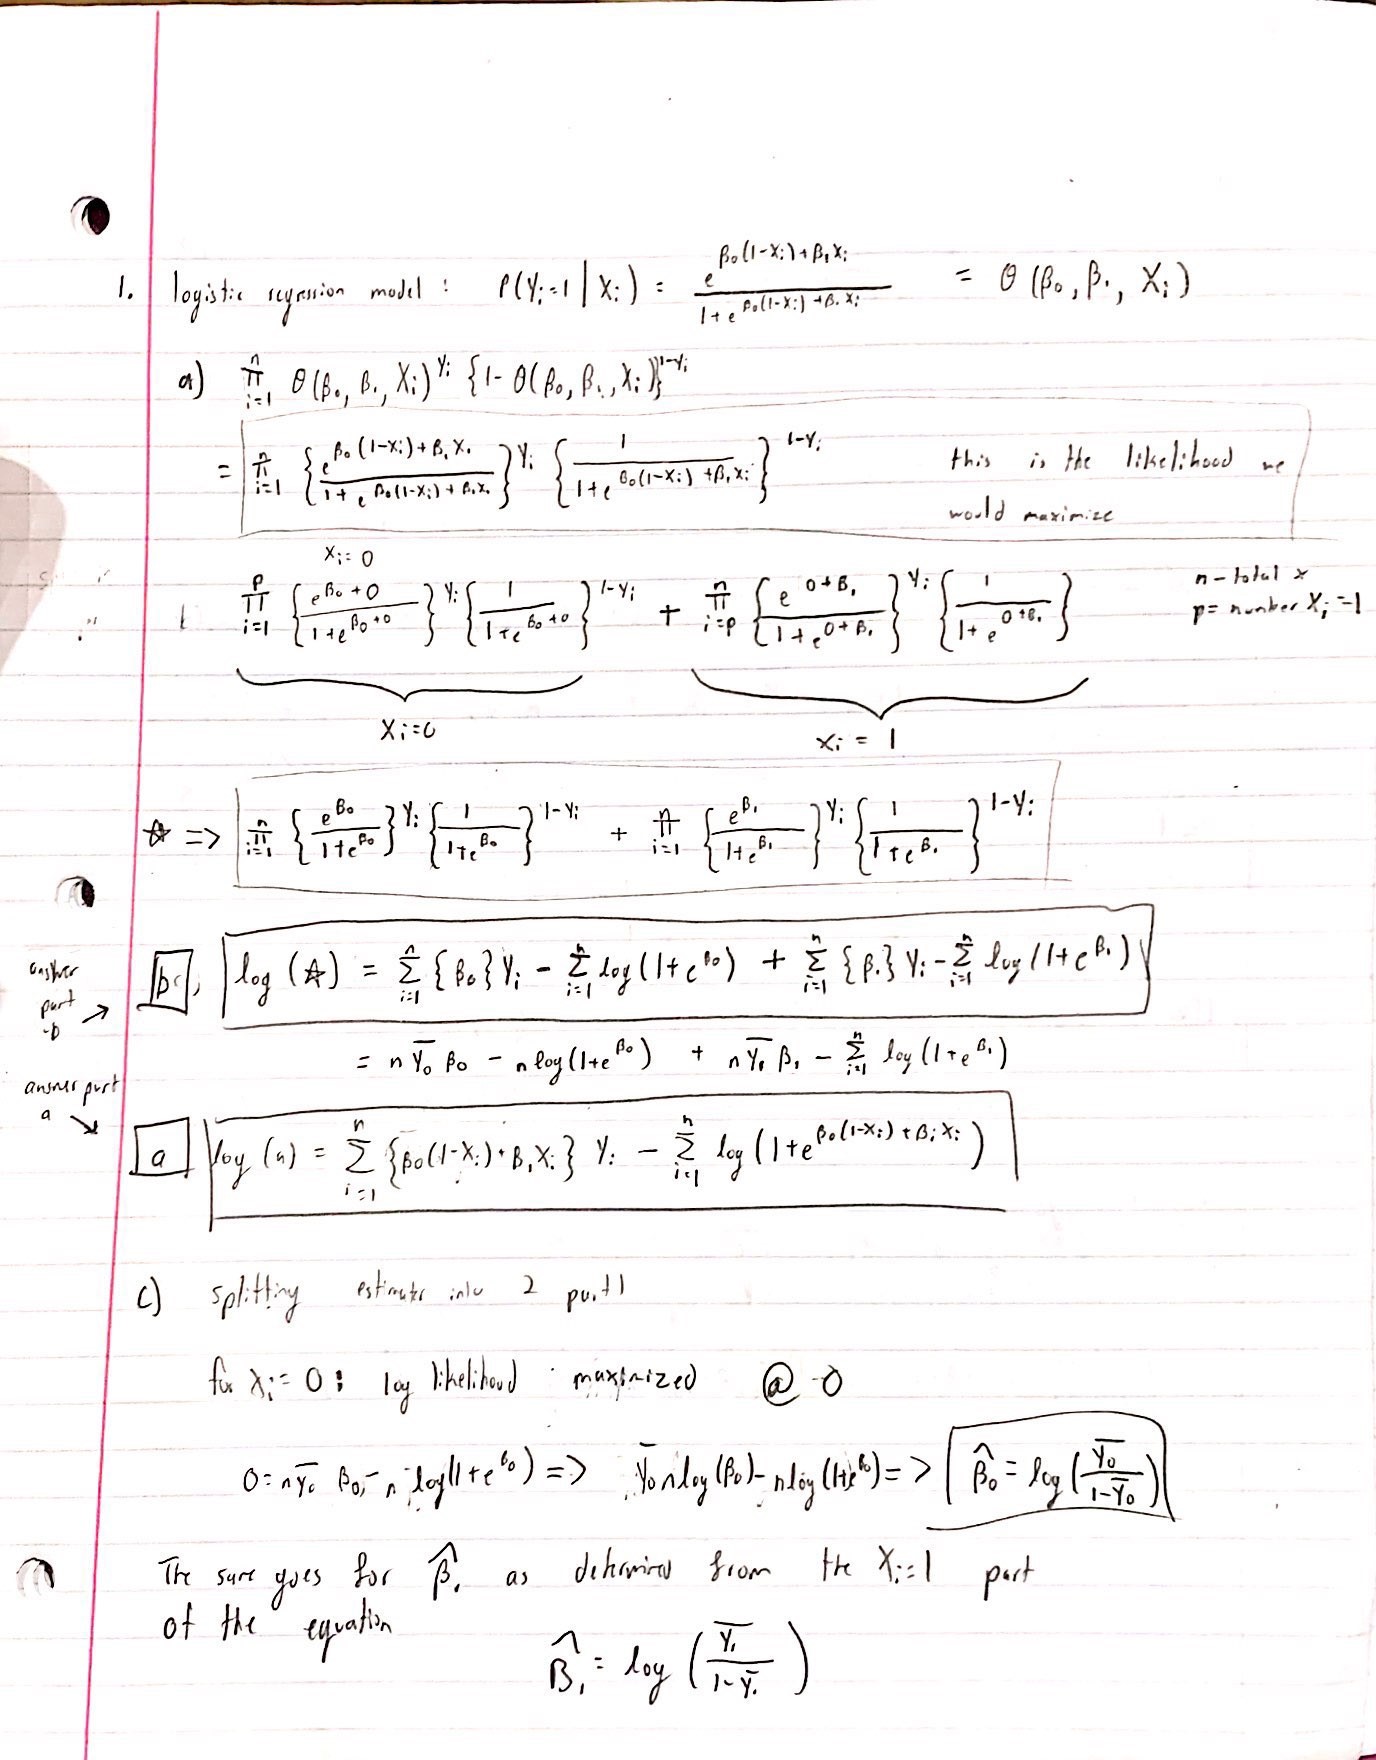 1. logistic regression model : P(Y_i=1 | X_i) = e^{β_0(1-X_i)+β_1X_i} / 1+e^{β_0(1-X_i)+β_1X_i} = θ(β_0, β_1, X_i)
a) ∏_{i=1}^{n} θ(β_0, β_1, X_i)^{Y_i} {1-θ(β_0, β_1, X_i)}^{1-Y_i}
= ∏_{i=1}^{n} {e^{β_0(1-X_i)+β_1X_i} / 1+e^{β_0(1-X_i)+β_1X_i}}^{Y_i} {1 / 1+e^{β_0(1-X_i)+β_1X_i}}^{1-Y_i} this is the likelihood we
would maximize
X_i=0
∏_{i=1}^{p} {e^{β_0+0} / 1+e^{β_0+0}}^{Y_i} {1 / 1+e^{β_0+0}}^{1-Y_i} + ∏_{i=p}^{n} {e^{0+β_1} / 1+e^{0+β_1}}^{Y_i} {1 / 1+e^{0+β_1}} n - total x
p = number X_i=1
X_i=0 X_i = 1
☆ => ∏_{i=1}^{n} {e^{β_0} / 1+e^{β_0}}^{Y_i} {1 / 1+e^{β_0}}^{1-Y_i} + ∏_{i=1}^{n} {e^{β_1} / 1+e^{β_1}}^{Y_i} {1 / 1+e^{β_1}}^{1-Y_i}
answer part -b → b, log(☆) = Σ_{i=1}^{n} {β_0} Y_i - Σ_{i=1}^{n} log(1+e^{β_0}) + Σ_{i=1}^{n} {β_1} Y_i - Σ_{i=1}^{n} log(1+e^{β_1})
= n Ȳ_0 β_0 - n log(1+e^{β_0}) + n Ȳ_1 β_1 - Σ_{i=1}^{n} log(1+e^{β_1})
answer part a ↘ a log(a) = Σ_{i=1}^{n} {β_0(1-X_i)+β_1X_i} Y_i - Σ_{i=1}^{n} log(1+e^{β_0(1-X_i)+β_1X_i})
c) splitting into 2
for X_i = 0 : log likelihood maximized @ 0
0 = nȲ_0 β_0 - n log(1+e^{β_0}) => Ȳ_0 n log(β_0) - n log(1+e^{β_0}) => β̂_0 = log(Ȳ_0 / 1-Ȳ_0)
The same goes for β̂_1 as determined from the X_i=1 part
of the equation
β̂_1 = log(Ȳ_1 / 1-Ȳ_1)